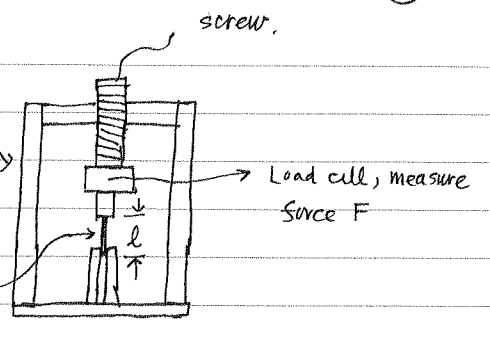 screw.
Load cell, measure
force F
l